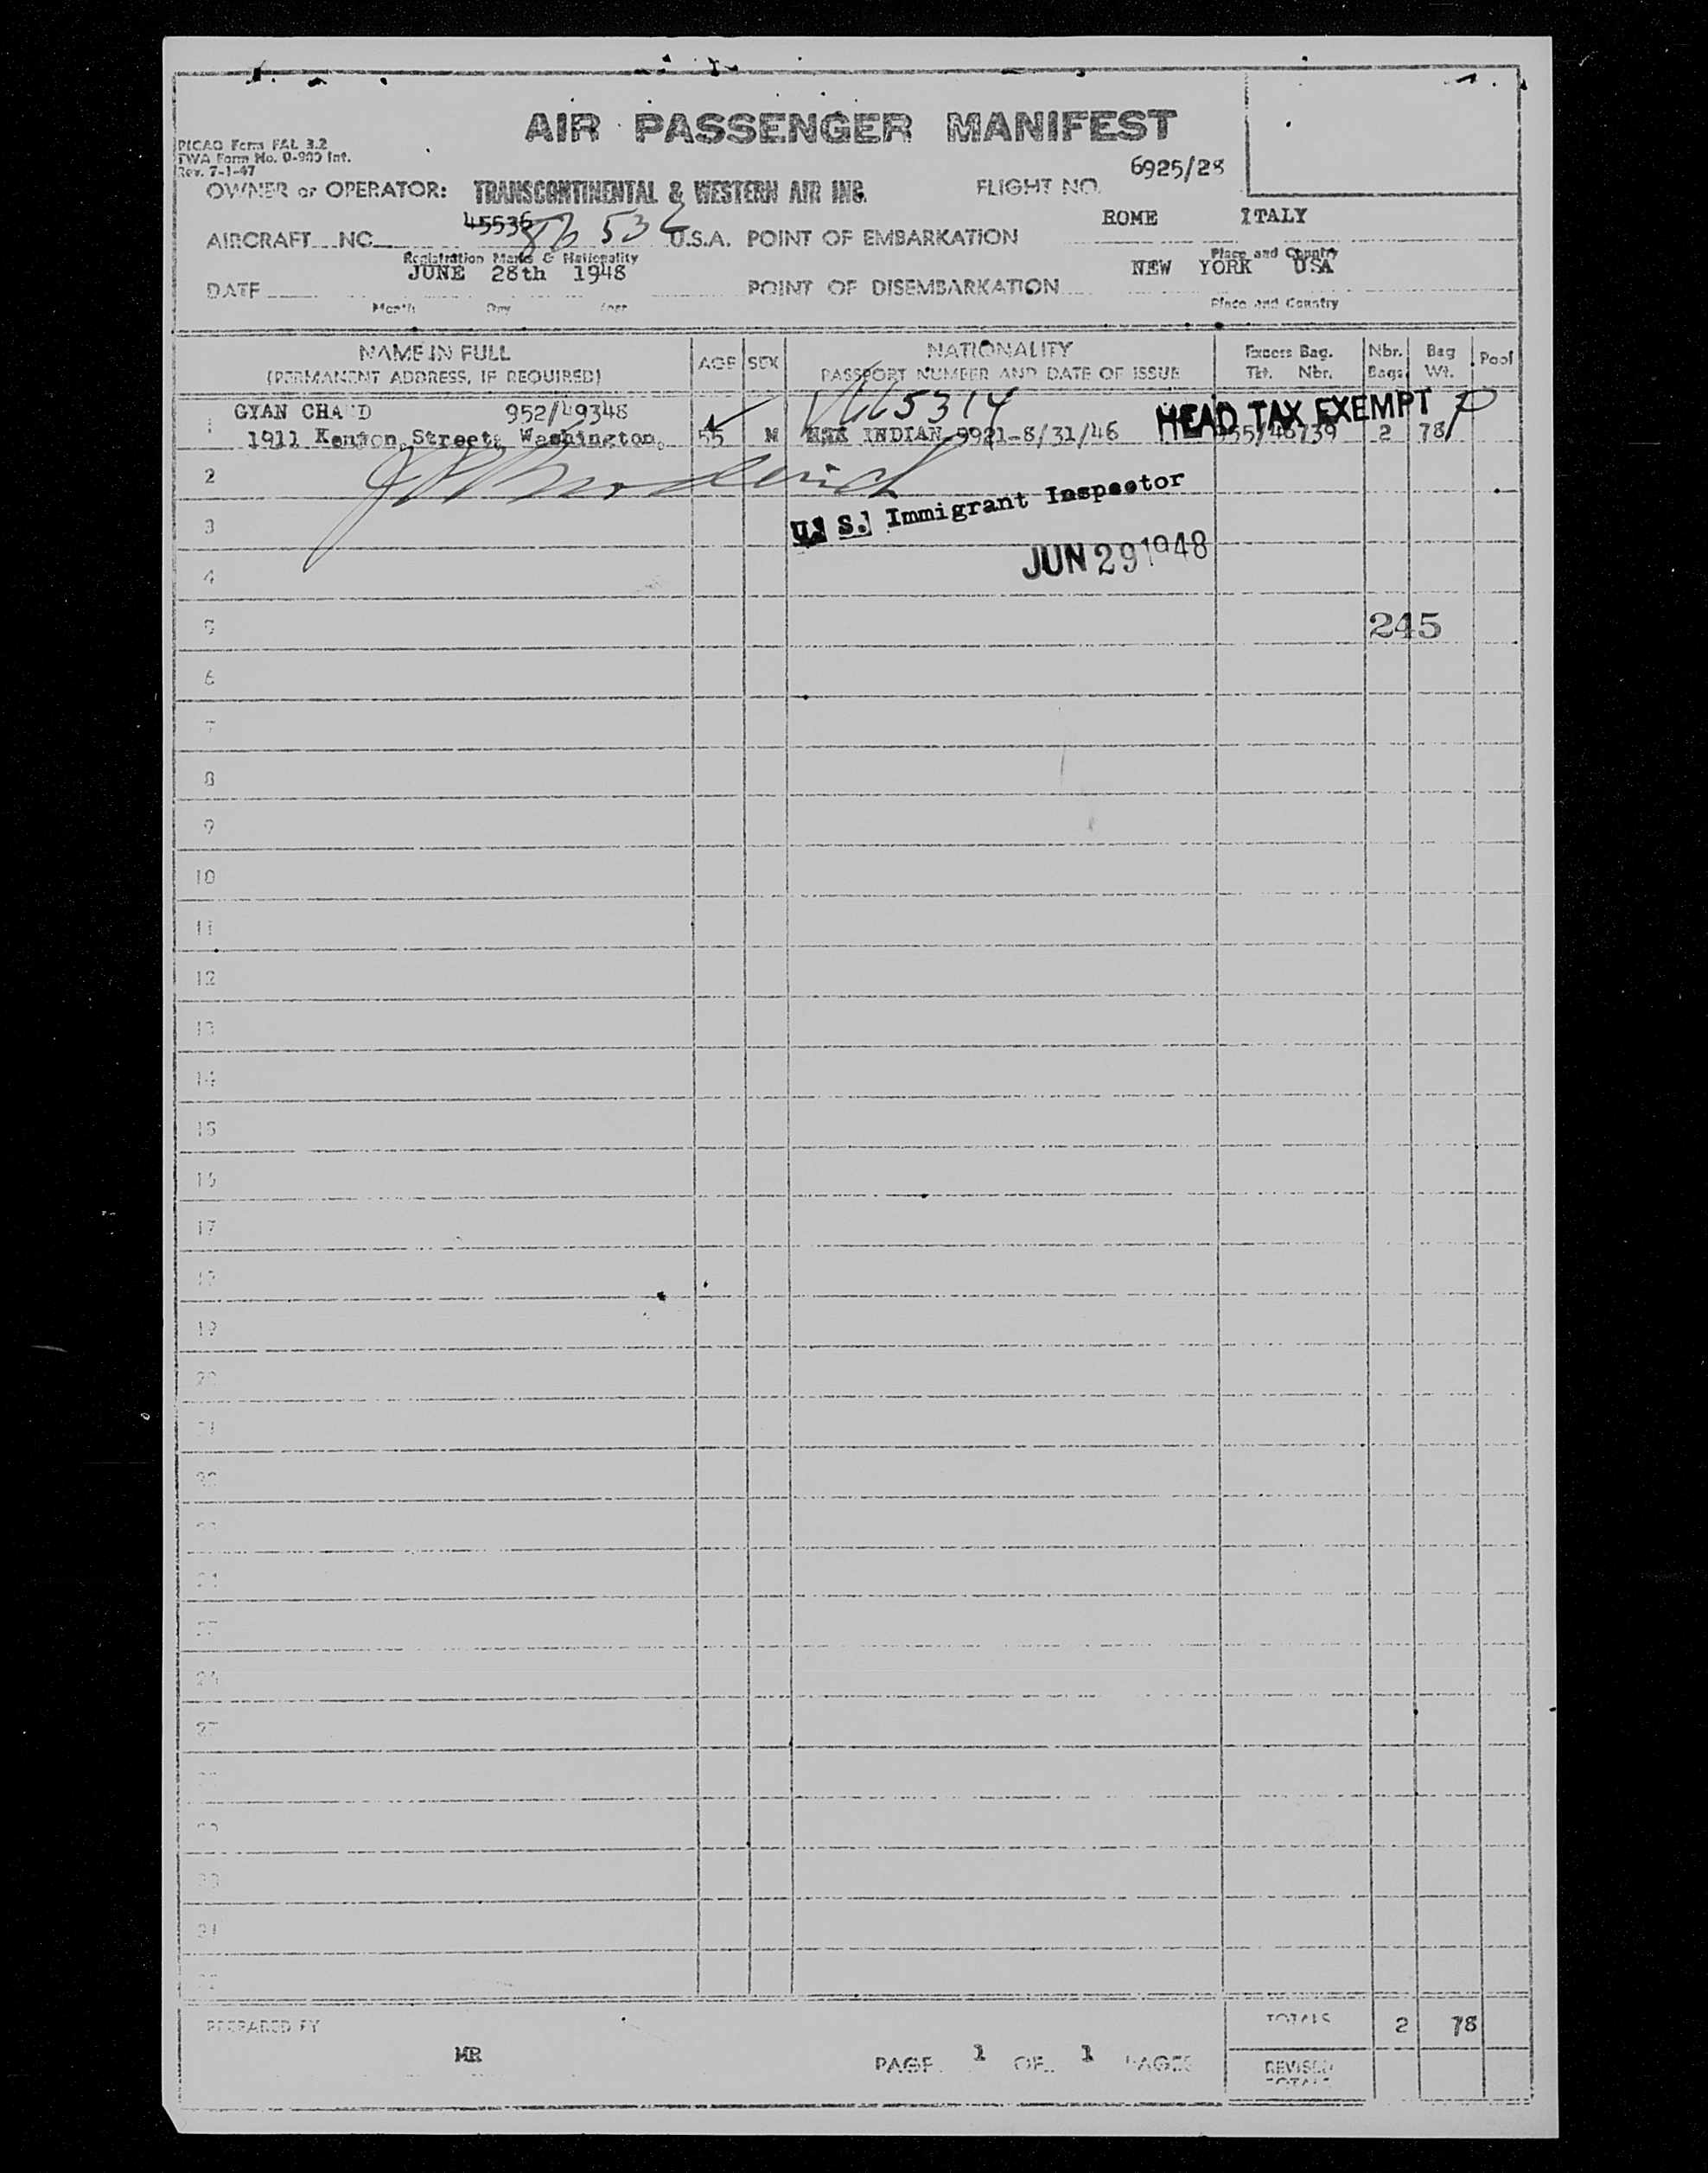 AIR PASSENGER MANIFEST
PICAO Form FAL 3.2
TWA Form No. 0-909 Int.
Rev. 7-1-47
6925/28
OWNER or OPERATOR: TRANSCONTINENTAL & WESTERN AIR INC. FLIGHT NO.
45536 ROME ITALY
AIRCRAFT NO. U.S.A. POINT OF EMBARKATION
Registration Marks & Nationality Place and Country
JUNE 28th 1948 NEW YORK USA
DATE POINT OF DISEMBARKATION
Month Day Year Place and Country
NAME IN FULL AGE SEX NATIONALITY Excess Bag. Nbr. Bag Pool
(PERMANENT ADDRESS, IF REQUIRED) PASSPORT NUMBER AND DATE OF ISSUE Tkt. Nbr. Bags Wt.
5314 HEAD TAX EXEMPT
1 GYAN CHAND 952/49348
1911 Kenyon Street, Washington, 55 M INDIAN 9921-8/31/46 955/46739 2 78
2
U. S. Immigrant Inspector
3
JUN 29 1948
4
5 245
6
7
8
9
10
11
12
13
14
15
16
17
18
19
20
21
22
23
24
25
26
27
28
29
30
31
32
PREPARED BY TOTALS 2 78
MR PAGE 1 OF 1 PAGES REVISED
TOTALS